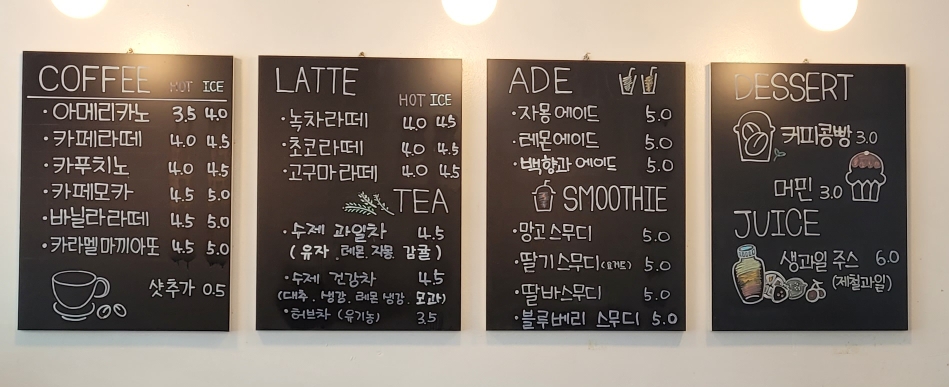 COFFEE HOT ICE
· 아메리카노 3.5 4.0
· 카페라떼 4.0 4.5
· 카푸치노 4.0 4.5
· 카페모카 4.5 5.0
· 바닐라라떼 4.5 5.0
· 카라멜마끼아또 4.5 5.0
샷추가 0.5
LATTE
HOT ICE
· 녹차라떼 4.0 4.5
· 초코라떼 4.0 4.5
· 고구마라떼 4.0 4.5
TEA
· 수제 과일차 4.5
(유자. 레몬. 자몽. 감귤)
· 수제 건강차 4.5
(대추. 생강. 레몬생강. 모과)
· 허브차 (유기농) 3.5
ADE
· 자몽에이드 5.0
· 레몬에이드 5.0
· 백향과에이드 5.0
SMOOTHIE
· 망고스무디 5.0
· 딸기스무디(요거트) 5.0
· 딸바스무디 5.0
· 블루베리 스무디 5.0
DESSERT
커피콩빵 3.0
머핀 3.0
JUICE
생과일 주스 6.0
(제철과일)